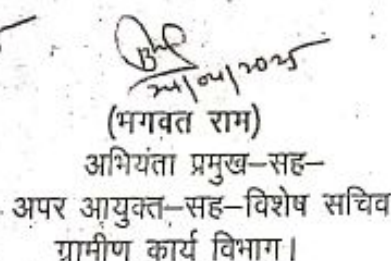 24/04/2025
(भगवत राम)
अभियंता प्रमुख–सह–
अपर आयुक्त–सह–विशेष सचिव
ग्रामीण कार्य विभाग।